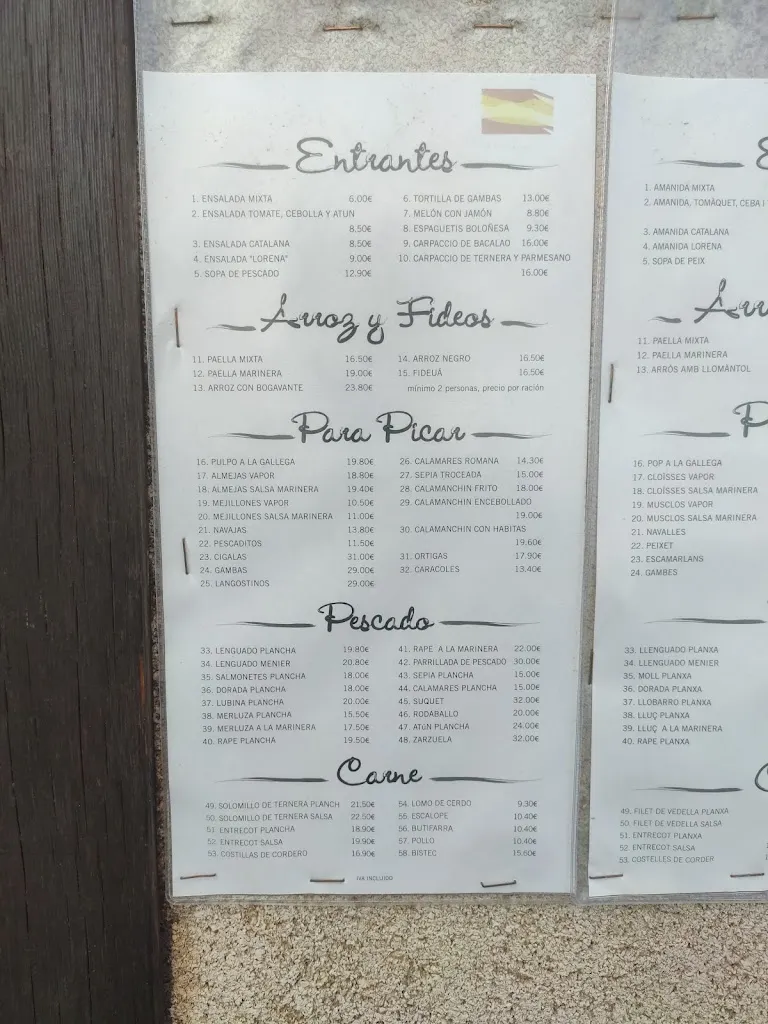 Entrantes
1. ENSALADA MIXTA 6.00€
2. ENSALADA TOMATE, CEBOLLA Y ATUN
8.50€
3. ENSALADA CATALANA 8.50€
4. ENSALADA "LORENA" 9.00€
5. SOPA DE PESCADO 12.90€
6. TORTILLA DE GAMBAS 13.00€
7. MELÓN CON JAMÓN 8.80€
8. ESPAGUETIS BOLOÑESA 9.30€
9. CARPACCIO DE BACALAO 16.00€
10. CARPACCIO DE TERNERA Y PARMESANO
16.00€
Arroz y Fideos
11. PAELLA MIXTA 16.50€
12. PAELLA MARINERA 19.00€
13. ARROZ CON BOGAVANTE 23.80€
14. ARROZ NEGRO 16.50€
15. FIDEUÁ 16.50€
mínimo 2 personas, precio por ración
Para Picar
16. PULPO A LA GALLEGA 19.80€
17. ALMEJAS VAPOR 18.80€
18. ALMEJAS SALSA MARINERA 19.40€
19. MEJILLONES VAPOR 10.50€
20. MEJILLONES SALSA MARINERA 11.00€
21. NAVAJAS 13.80€
22. PESCADITOS 11.50€
23. CIGALAS 31.00€
24. GAMBAS 29.00€
25. LANGOSTINOS 29.00€
26. CALAMARES ROMANA 14.30€
27. SEPIA TROCEADA 15.00€
28. CALAMANCHIN FRITO 18.00€
29. CALAMANCHIN ENCEBOLLADO
19.00€
30. CALAMANCHIN CON HABITAS
19.60€
31. ORTIGAS 17.90€
32. CARACOLES 13.40€
Pescado
33. LENGUADO PLANCHA 19.80€
34. LENGUADO MENIER 20.80€
35. SALMONETES PLANCHA 18.00€
36. DORADA PLANCHA 18.00€
37. LUBINA PLANCHA 20.00€
38. MERLUZA PLANCHA 15.50€
39. MERLUZA A LA MARINERA 17.50€
40. RAPE PLANCHA 19.50€
41. RAPE A LA MARINERA 22.00€
42. PARRILLADA DE PESCADO 30.00€
43. SEPIA PLANCHA 15.00€
44. CALAMARES PLANCHA 15.00€
45. SUQUET 32.00€
46. RODABALLO 20.00€
47. ATúN PLANCHA 24.00€
48. ZARZUELA 32.00€
Carne
49. SOLOMILLO DE TERNERA PLANCH 21.50€
50. SOLOMILLO DE TERNERA SALSA 22.50€
51. ENTRECOT PLANCHA 18.90€
52. ENTRECOT SALSA 19.90€
53. COSTILLAS DE CORDERO 16.90€
54. LOMO DE CERDO 9.30€
55. ESCALOPE 10.40€
56. BUTIFARRA 10.40€
57. POLLO 10.40€
58. BISTEC 15.60€
IVA INCLUIDO
1. AMANIDA MIXTA
2. AMANIDA, TOMÀQUET, CEBA I
3. AMANIDA CATALANA
4. AMANIDA LORENA
5. SOPA DE PEIX
11. PAELLA MIXTA
12. PAELLA MARINERA
13. ARRÒS AMB LLOMÀNTOL
16. POP A LA GALLEGA
17. CLOÏSSES VAPOR
18. CLOÏSSES SALSA MARINERA
19. MUSCLOS VAPOR
20. MUSCLOS SALSA MARINERA
21. NAVALLES
22. PEIXET
23. ESCAMARLANS
24. GAMBES
33. LLENGUADO PLANXA
34. LLENGUADO MENIER
35. MOLL PLANXA
36. DORADA PLANXA
37. LLOBARRO PLANXA
38. LLUÇ PLANXA
39. LLUÇ A LA MARINERA
40. RAPE PLANXA
49. FILET DE VEDELLA PLANXA
50. FILET DE VEDELLA SALSA
51. ENTRECOT PLANXA
52. ENTRECOT SALSA
53. COSTELLES DE CORDER